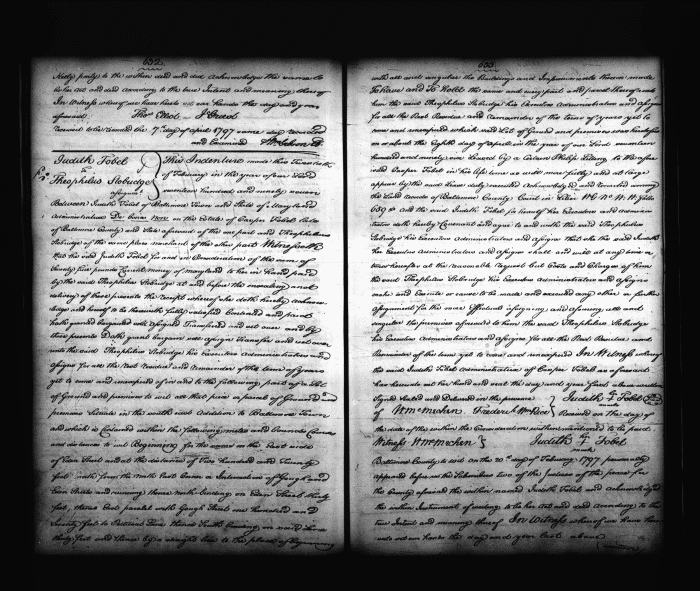 632
party to the within deed and did acknowledge the same to
be her act and deed according to the true Intent and meaning thereof
In Witness whereof we have hereto set our hands the day and year
aforesaid, Thos Elliot
received to be recorded the 7th day of April 1797 same day recorded
and examined
Judith Fobel
to
Theophilus
assignmt
This Indenture made this Twentieth
of February in the year of our Lord
seventeen hundred and ninety seven
Between Judith Fobel of Baltimore Town and State of Maryland
Administratrix De Bonis Non on the Estate of Casper Fobel late
of Baltimore County and State aforesaid of the one part and Theophilus
of the same place of the other part Witnesseth
that the said Judith Fobel for and in Consideration of the sum of
pounds Current money of Maryland to her in hand paid
by the said Theophilus at and before the ensealing and
delivery of these presents the receipt whereof she doth hereby acknow
ledge and herself to be therewith fully satisfied Contented and paid
hath granted bargained sold assigned Transferred and set over and by
these presents Doth grant bargain sell assign transfer and set over
unto the said Theophilus his executors administrators and
assigns for all the rest residue and remainder of the term of years
yet to come and unexpired of in and to the following part of a lot
of Ground and premises to wit all that piece or parcel of Ground and
premises situate in the addition to Baltimore Town
and which is contained within the following metes and bounds Courses
and distances to wit Beginning for the same on the East side
of Eden Street and at the distance of five hundred and twenty
feet north from the North East Corner or Intersection of Gough and
Eden Streets and running thence North binding on Eden Street thirty
feet, thence East parallel with Gough Street one hundred and
Seventy feet to thence South bounding on said
thirty feet and thence by a straight line to the place of beginning
633
with all and singular the Buildings and Improvements thereon made
To have and To Hold the same and every part and parcel thereof unto
him the said Theophilus his Executors Administrators and Assigns
for all the Rest Residue and Remainder of the term of years yet to
come and unexpired which said Lot of Ground and premises were
on or about the Eighth day of April in the year of our Lord seventeen
hundred and ninety one Leased by a certain Philip to the afore
said Casper Fobel in his life time as will more fully and at large
appear by the said Lease duly executed acknowledged and recorded among
the Land records of Baltimore County Court in Liber W G No
and the said Judith Fobel for herself her Executors and Admini
strators doth hereby Covenant and agree to and with the said Theophilus
his Executors Administrators and Assigns that she the said Judith
her Executors Administrators and Assigns shall and will at any time or
times hereafter at the reasonable request but Costs and Charges of him
the said Theophilus his Executors Administrators and assigns
make and Execute or cause to be made and executed any other or further
assignment for the more effectual assigning and assuring all and
singular the premises aforesaid to him the said Theophilus
his Executors Administrators and Assigns for all the Rest Residue and
Remainder of the term yet to come and unexpired In Witness whereof
the said Judith Fobel Administratrix of Casper Fobel as aforesaid
has hereunto set her hand and seal the day and year first above written
Signed Sealed and Delivered in the presence
of Wm Mechen
Judith Fobel
mark
Received on the day of
the date of the within the Consideration within mentioned to be paid
Witness Wm Mechen
Judith Fobel
mark
Baltimore County to wit on the 20th day of February 1797 personally
appeared before us the Subscribers two of the Justices of the peace for
the County aforesaid the within named Judith Fobel and acknowledged
the within Instrument of writing to be her act and deed according to the
true Intent and meaning thereof In Witness whereof we have here
unto set our hands the day and year last above